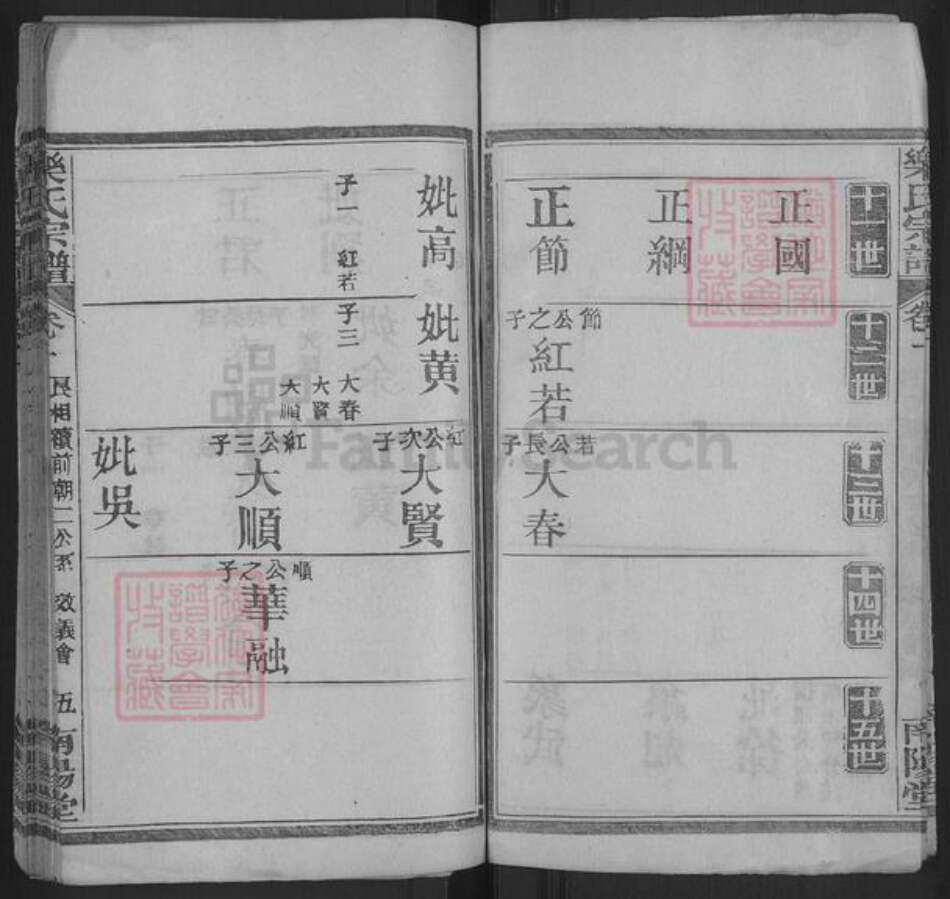 樂氏宗譜
卷一
南陽堂
十一世
十二世
十三世
十四世
十五世
正國
正綱
正節
節公之子
紅若
若公長子
大春
妣高
子一 紅若
妣黃
子三 大春
大賢
大順
紅公次子
大賢
紅公三子
大順
妣吳
順公之子
華融
樂氏宗譜
卷一
前朝二公系
效義會
五
南陽堂
FamilySearch